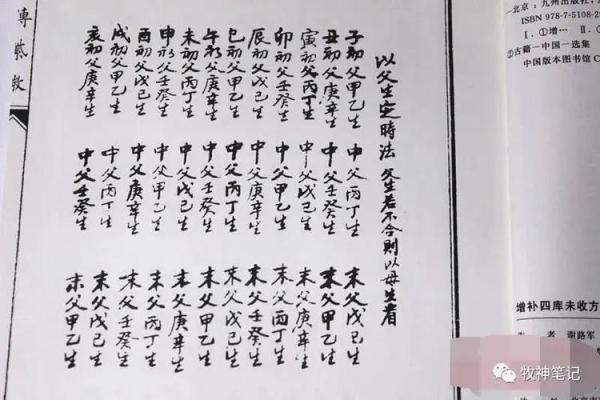 以父生定時法 父生若不合則以母生者
子初父甲乙生 中父丙丁生 末父戊己生
丑初父庚辛生 中父壬癸生 末父甲乙生
寅初父丙丁生 中父戊己生 末父庚辛生
卯初父壬癸生 中父甲乙生 末父丙丁生
辰初父戊己生 中父庚辛生 末父壬癸生
巳初父甲乙生 中父丙丁生 末父戊己生
午初父庚辛生 中父壬癸生 末父甲乙生
未初父丙丁生 中父戊己生 末父庚辛生
申初父壬癸生 中父甲乙生 末父丙丁生
酉初父戊己生 中父庚辛生 末父壬癸生
戌初父甲乙生 中父丙丁生 末父戊己生
亥初父庚辛生 中父壬癸生 末父甲乙生
—北京：九州出版社，
ISBN 978-7-5108-25
Ⅰ.①增… Ⅱ.
②古籍—中国—选集
中国版本图书馆C
增补四库未收方
者 谢路军
牧神笔记